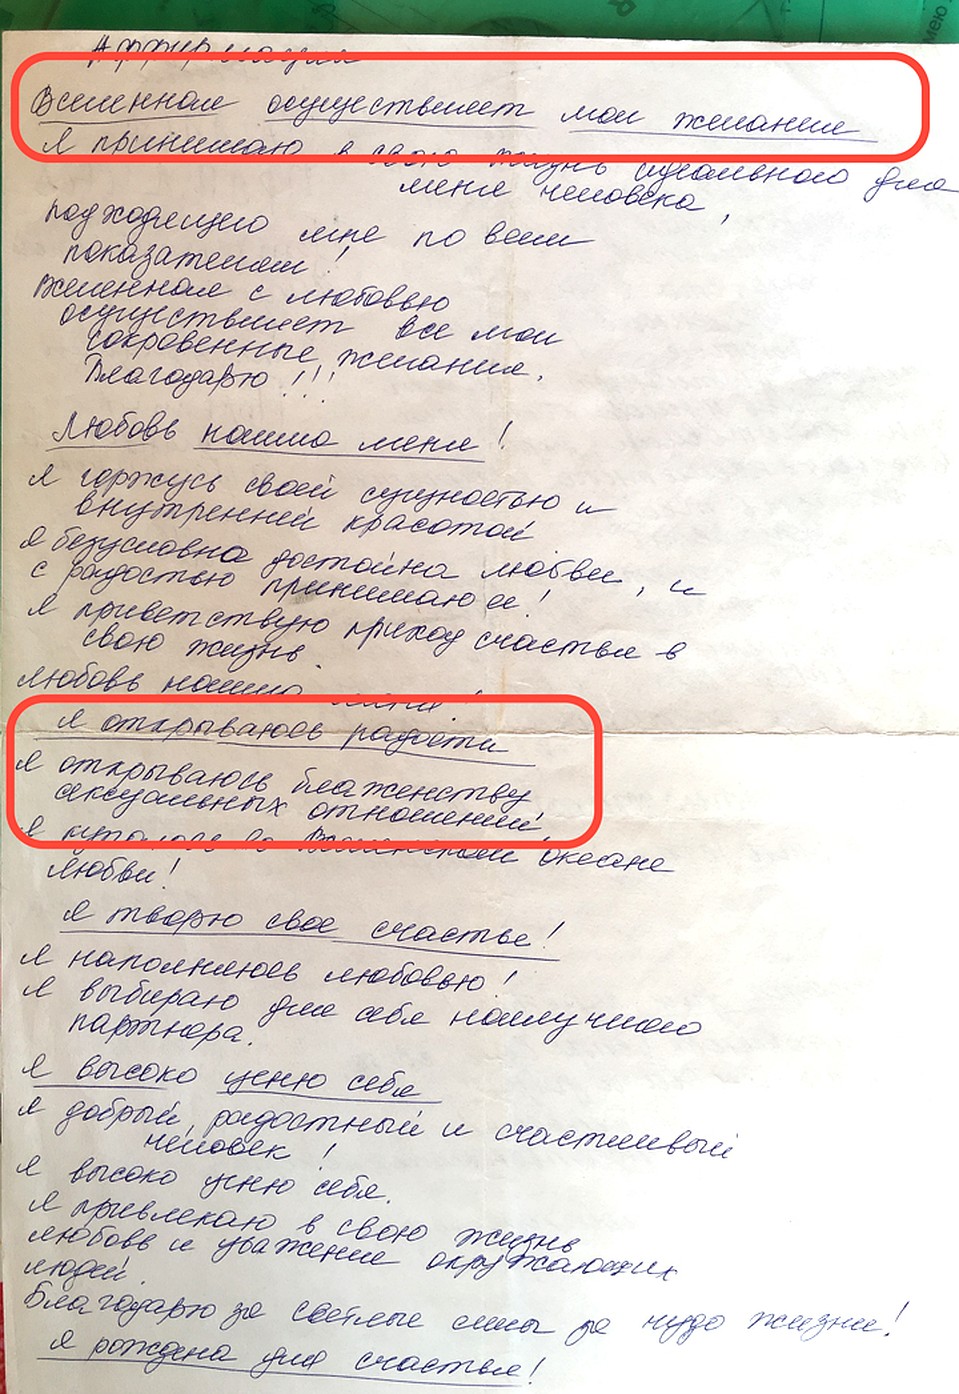 Аффирмации
Вселенная осуществляет мои желания
Я принимаю в свою жизнь идеального для
меня человека,
подходящего мне по всем
показателям!
Вселенная с любовью
осуществляет все мои
сокровенные желания.
Благодарю!!!
Любовь нашла меня!
Я горжусь своей сущностью и
внутренней красотой
Я безусловно достойна любви, и
с радостью принимаю ее!
Я приветствую приход счастья в
свою жизнь
Любовь нашла меня!
Я открываюсь радости
Я открываюсь блаженству
сексуальных отношений
Я купаюсь во Вселенском океане
любви!
Я творю свое счастье!
Я наполняюсь любовью!
Я выбираю для себя наилучшего
партнера.
Я высоко ценю себя
Я добрый, радостный и счастливый
человек!
Я высоко ценю себя.
Я привлекаю в свою жизнь
любовь и уважение окружающих
людей.
Благодарю за светлые силы за чудо жизни!
Я рождена для счастья!